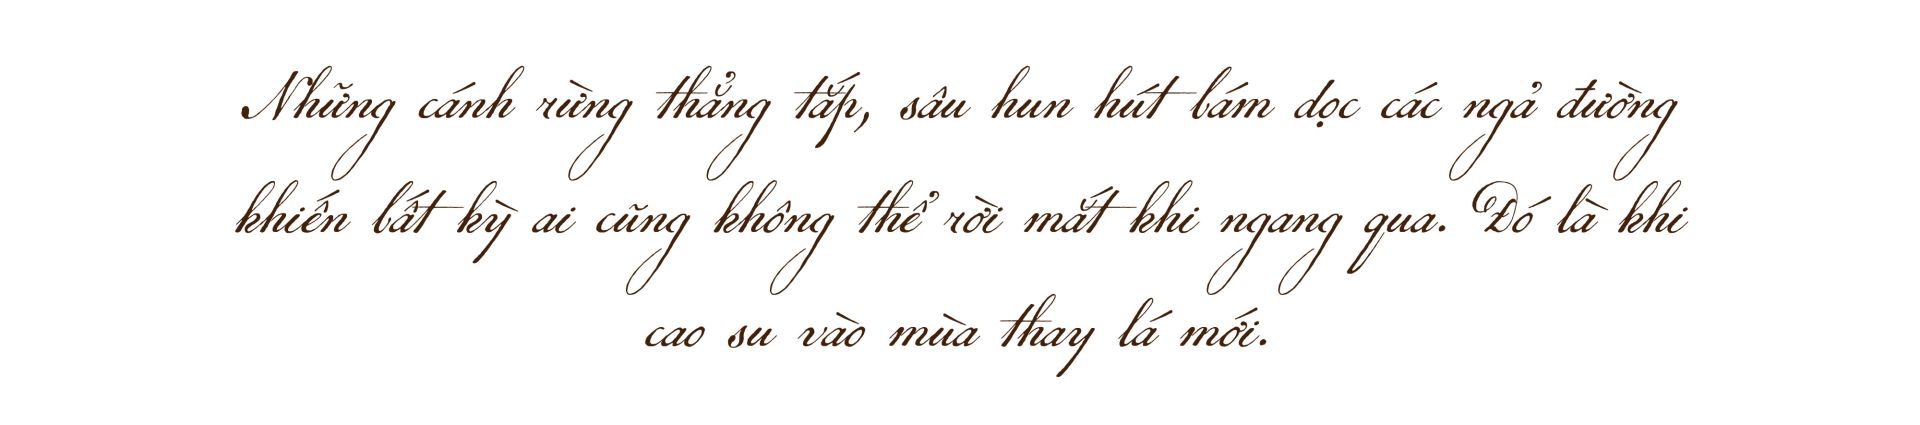 Những cánh rừng thẳng tắp, sâu hun hút bám dọc các ngả đường
khiến bất kỳ ai cũng không thể rời mắt khi ngang qua. Đó là khi
cao su vào mùa thay lá mới.